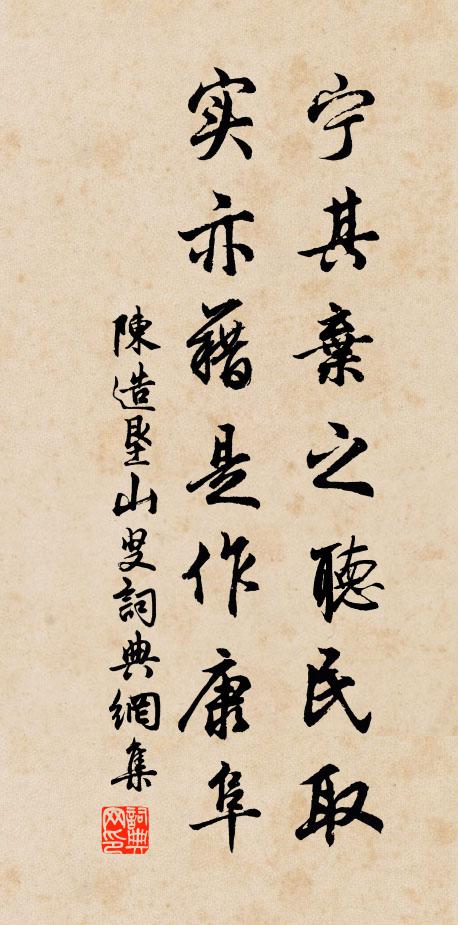 宁其棄之聽民取
实亦藉是作康阜
陳造垦山叟詞典網集
詞典网印